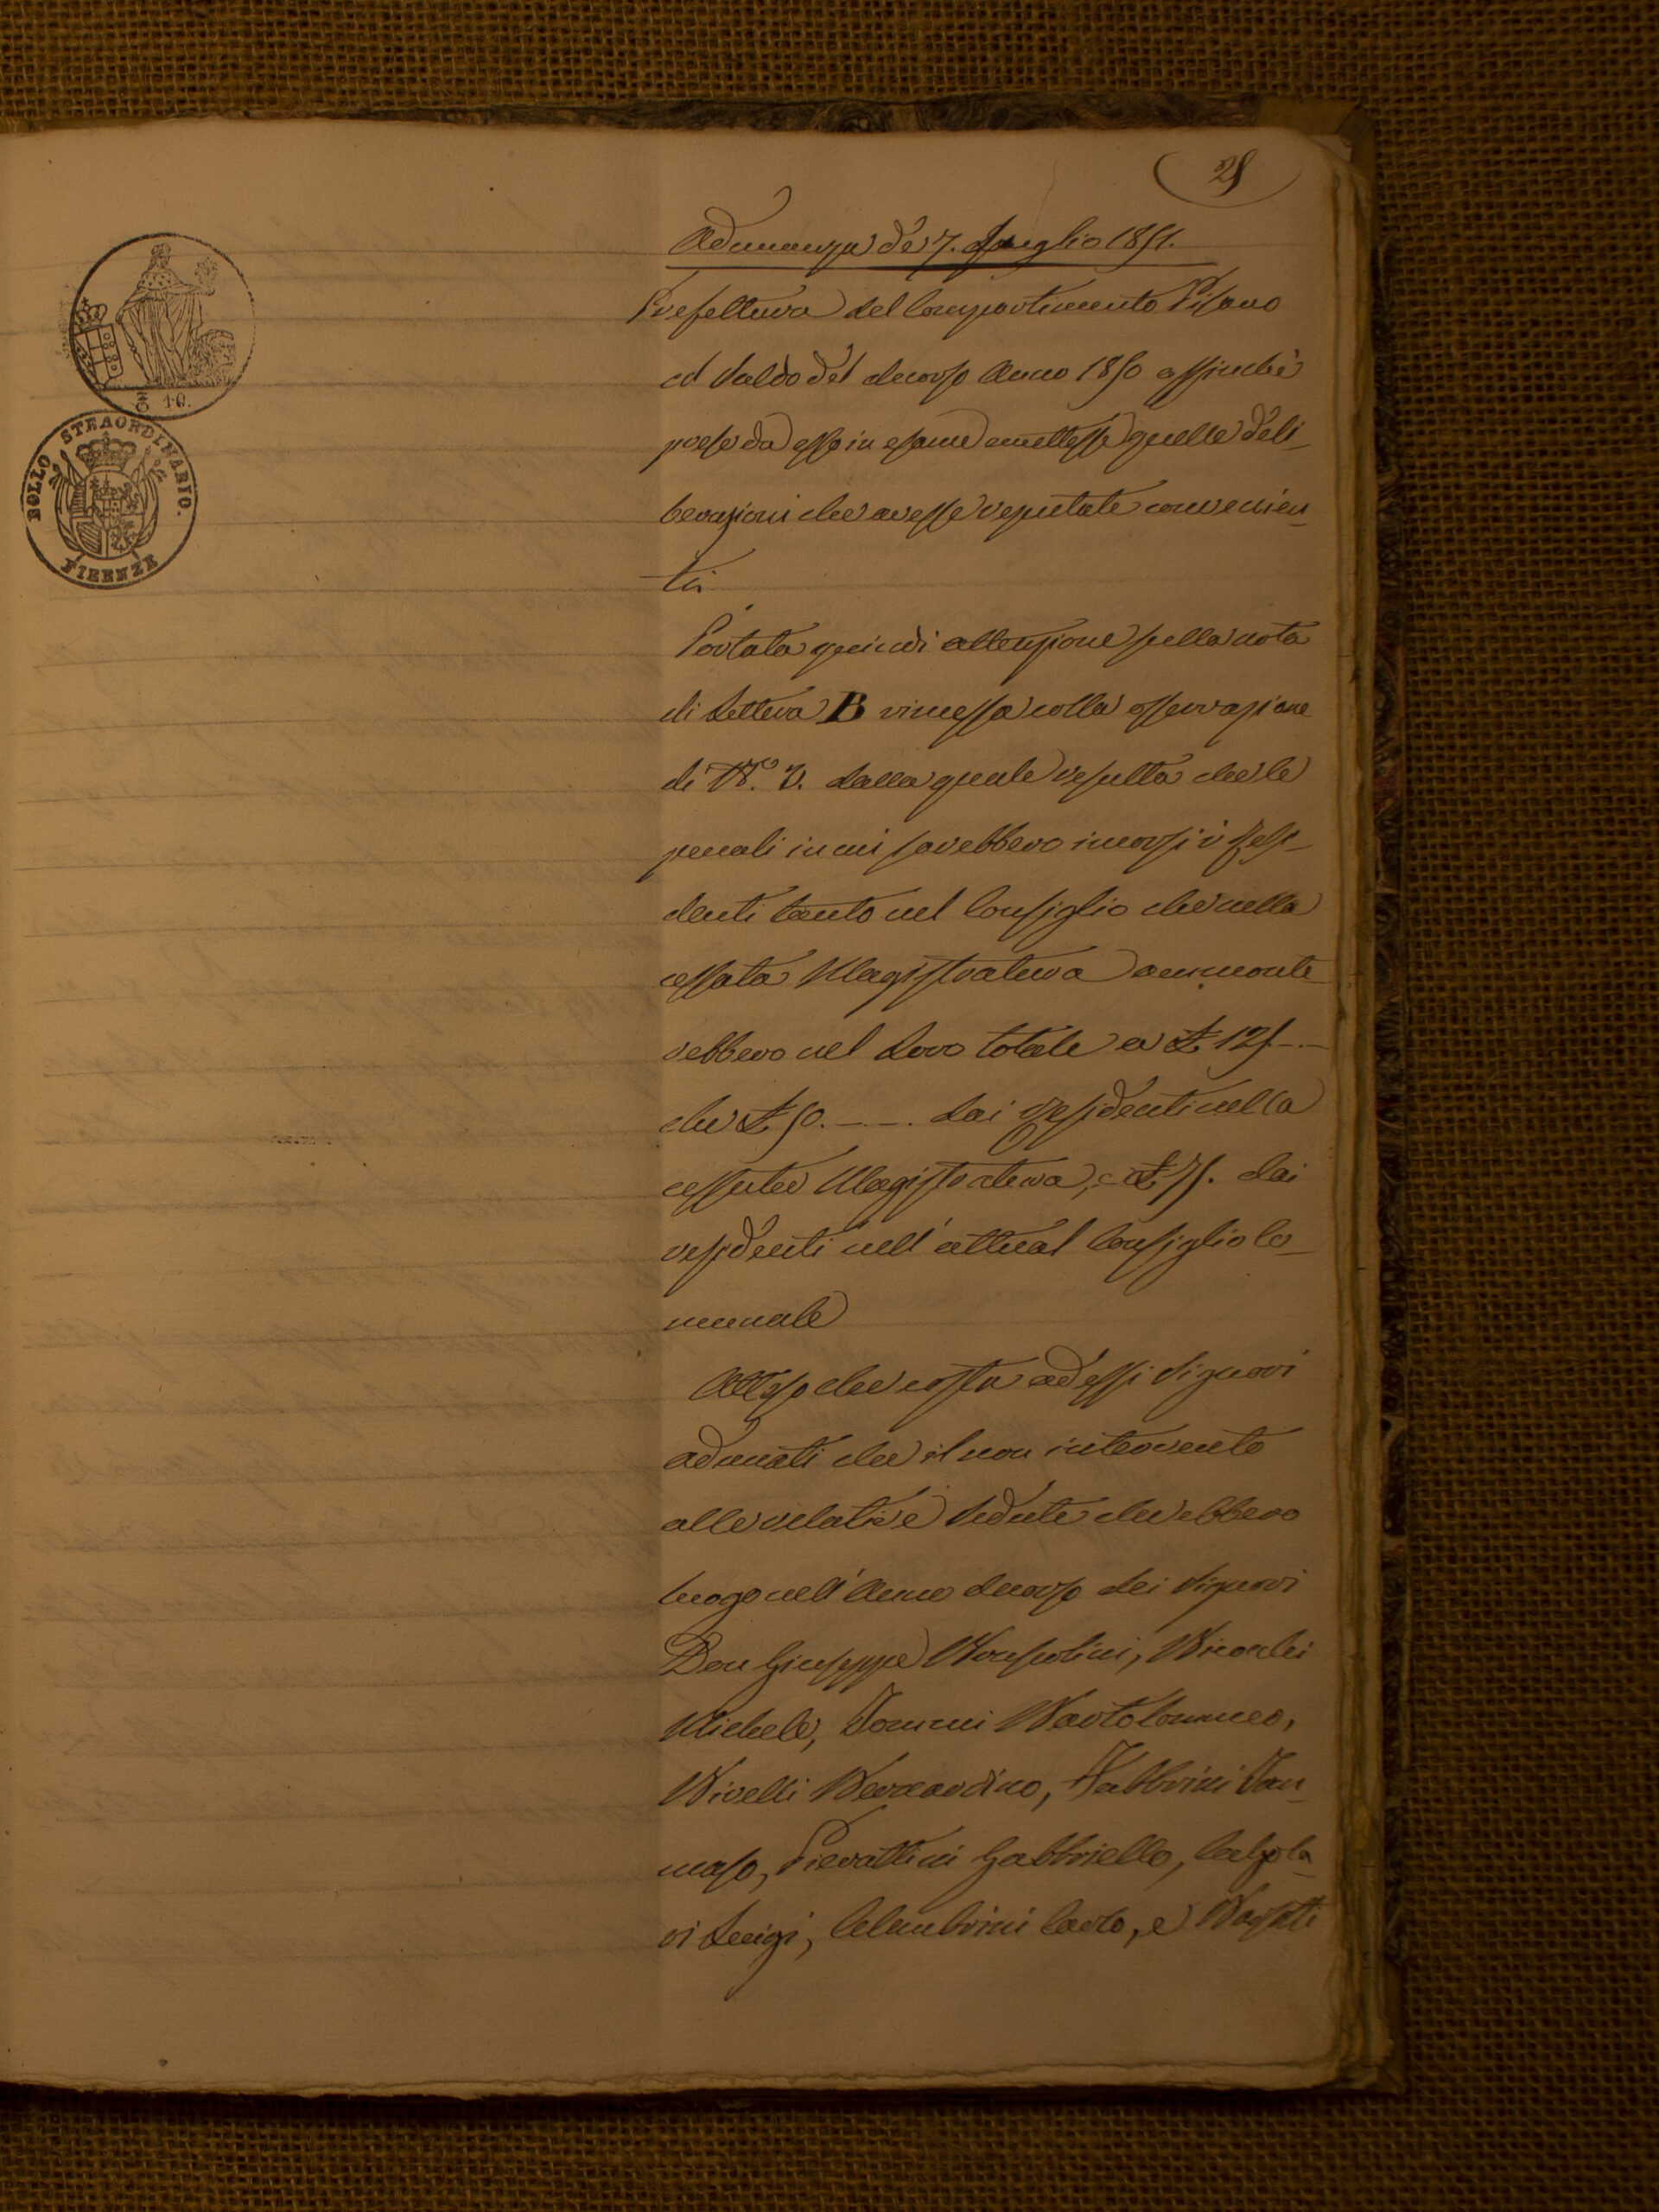 28
Adunanza de' 7. Luglio 1851.
Prefettura del Compartimento Pisano
al Saldo del decorso Anno 1850 affinchè
preso da esso in esame emettesse quelle deli_
berazioni che avesse reputate convenien_
ti
Portata quindi attenzione sulla nota
di Lettera B rimessa colla osservazione
di N.º 3. dalla quale resulta che le
penali in cui sarebbero incorsi i Resi_
denti tanto nel Consiglio che nella
cessata Magistratura ammonte_
rebbero nel loro totale a £ 125.-.-
che £ 50.-.-. dai Residenti nella
cessata Magistratura, e £ 75. dai
residenti nell' attual Consiglio Co_
munale
Atteso che costa ad essi Signori
adunati che il non intervento
alle relative Sedute che ebbero
luogo nell' Anno decorso dei Signori
Don Giuseppe
Michele, Tommi Bartolommeo,
Bivelli Bernardino, Fabbrini Tom_
maso, Pierattini Gabbriello, Calzola_
ri Luigi, Carlo, e
BOLLO STRAORDINARIO.
FIRENZE